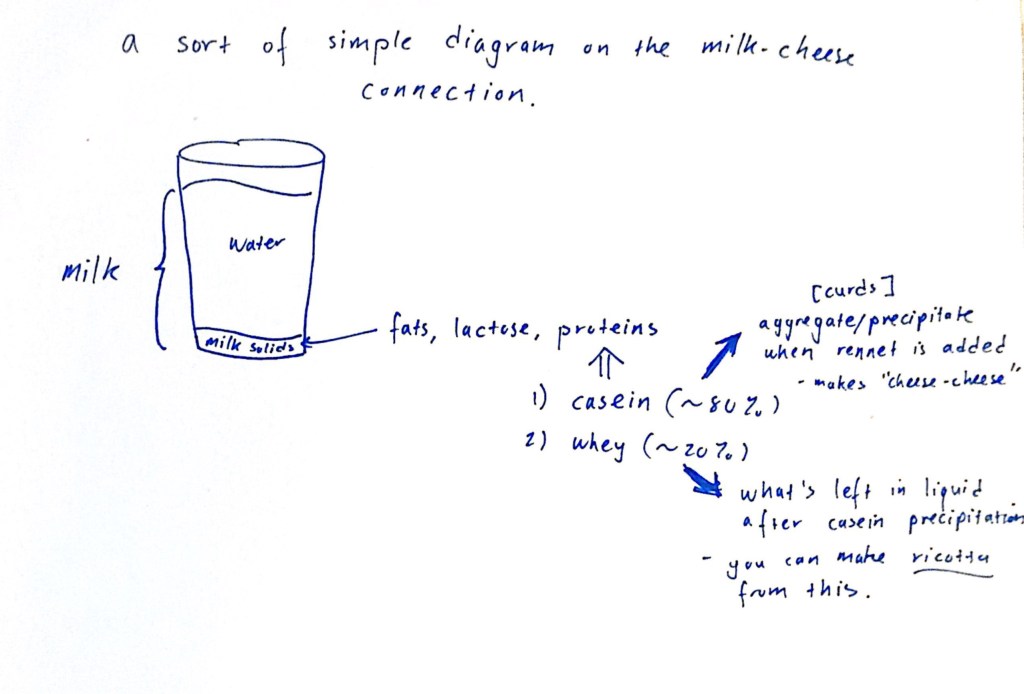 a sort of simple diagram on the milk-cheese
connection.
water
milk
milk solids
fats, lactose, proteins
[curds]
aggregate/precipitate
when rennet is added
- makes "cheese-cheese"
1) casein (~80%)
2) whey (~20%)
what's left in liquid
after casein precipitation
- you can make ricotta
from this.